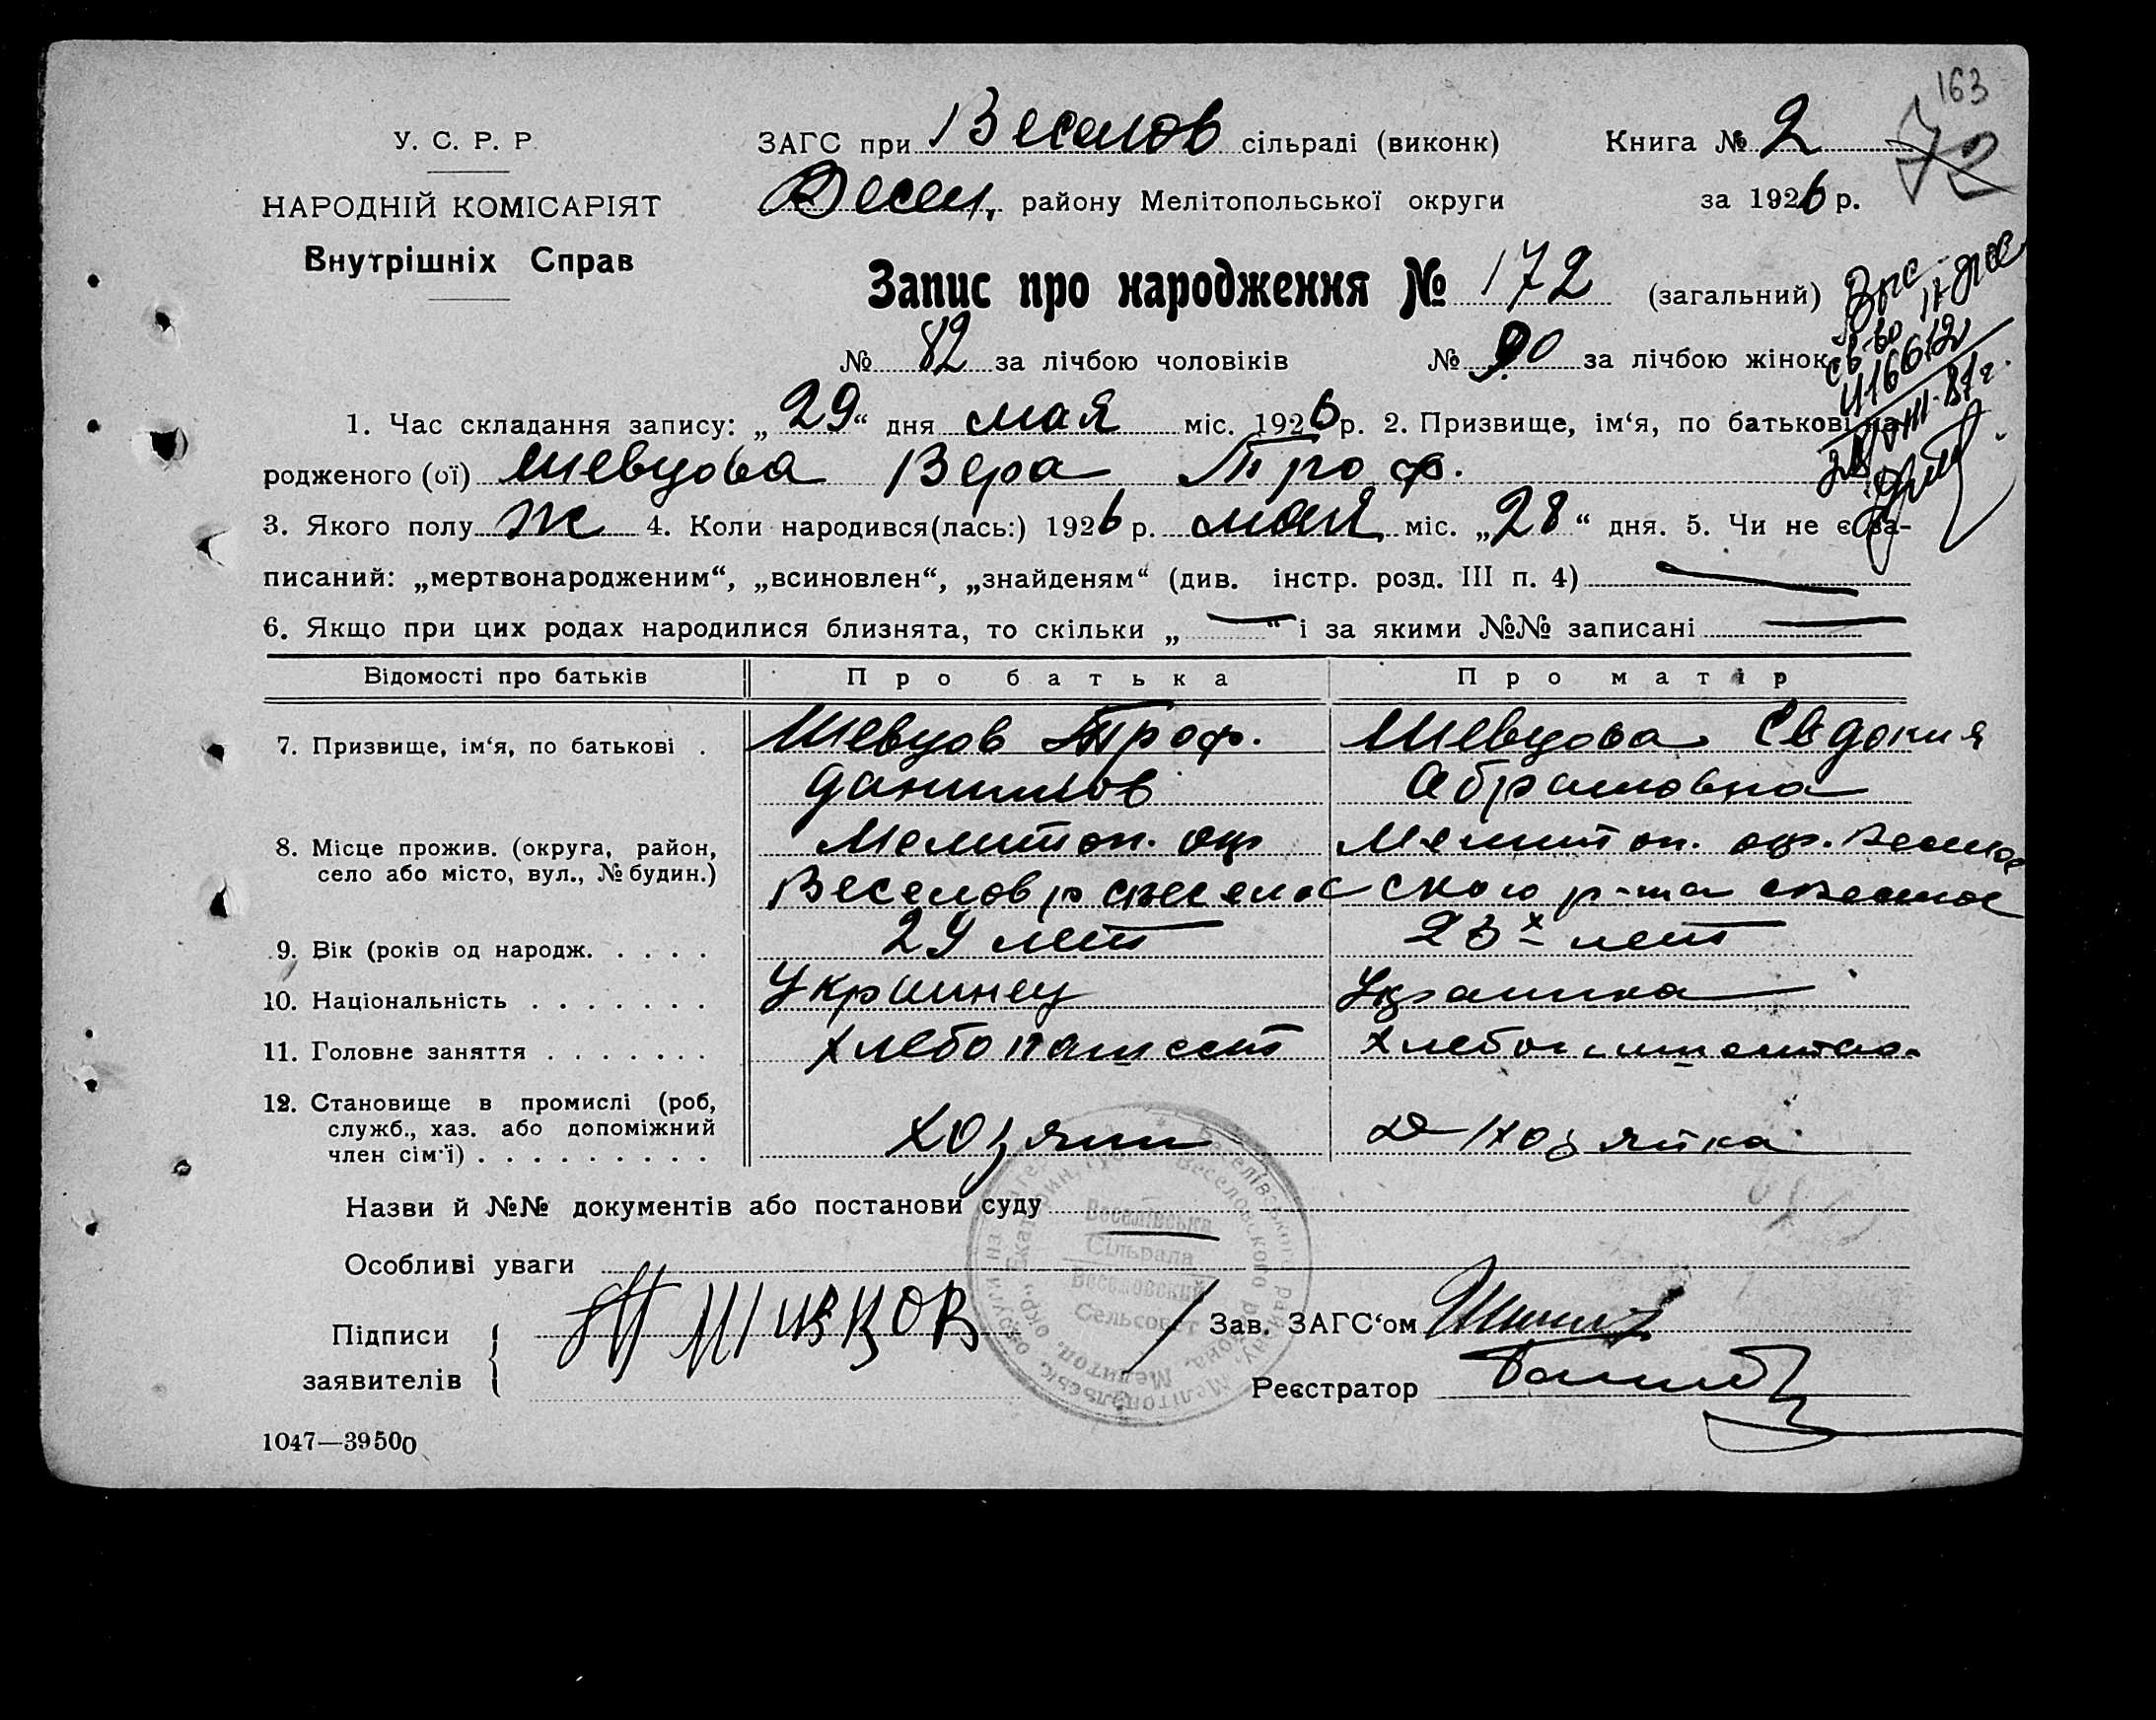 163
У. С. Р. Р.
ЗАГС при Веселов сільраді (виконк)
Книга № 2
72
НАРОДНІЙ КОМІСАРІЯТ
Весел. району Мелітопольської округи
за 1926 р.
Внутрішніх Справ
Запис про народження № 172 (загальний)
№ 82 за лічбою чоловіків № 90 за лічбою жінок
1. Час складання запису: „29“ дня мая міс. 1926 р. 2. Призвище, ім‘я, по батькові на-
родженого (ої) Шевцова Вера Троф.
3. Якого полу Ж 4. Коли народився(лась:) 1926 р. мая міс. „28“ дня. 5. Чи не є за-
писаний: „мертвонародженим“, „всиновлен“, „знайденям“ (див. інстр. розд. III п. 4)
6. Якщо при цих родах народилися близнята, то скільки „ “ і за якими №№ записані
Відомості про батьків Про батька Про матір
7. Призвище, ім‘я, по батькові . Шевцов Троф. Шевцова Евдокия
Данилов Абрамовна
8. Місце прожив. (округа, район, Мелитоп. окр Мелитоп. окр.
село або місто, вул., № будин.) Веселов р ского р-на
9. Вік (років од народж. . . . . 29 лет 23х лет
10. Національність . . . . . . . Украинец Украинка
11. Головне заняття . . . . . . . хлебопашест хлебопашество
12. Становище в промислі (роб,
служб., хаз. або допоміжний хозяин д/хозяйка
член сім‘ї) . . . . . . . . .
Назви й №№ документів або постанови суду
Особливі уваги
Веселівська
Сільрада
Веселовский
Сельсовет
Підписи Т Шивцов Зав. ЗАГС‘ом
заявителів Реєстратор
1047—39500